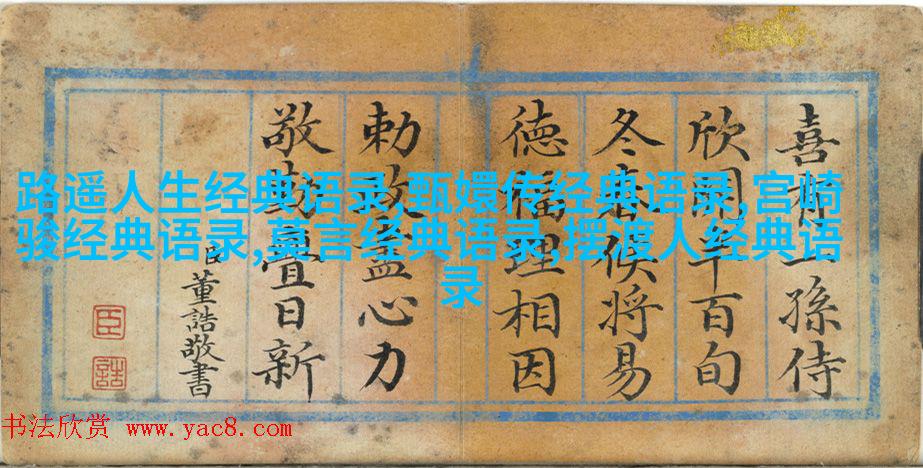 路遥人生经典语录,甄嬛传经典语录,宫崎
骏经典语录,莫言经典语录,摆渡人经典语
录
喜有孫侍
欣百旬
冬春候将易
德福理相因
勅政盡心力
敬勤日新
臣董誥敬書
臣
誥
书法欣赏 www.yac8.com